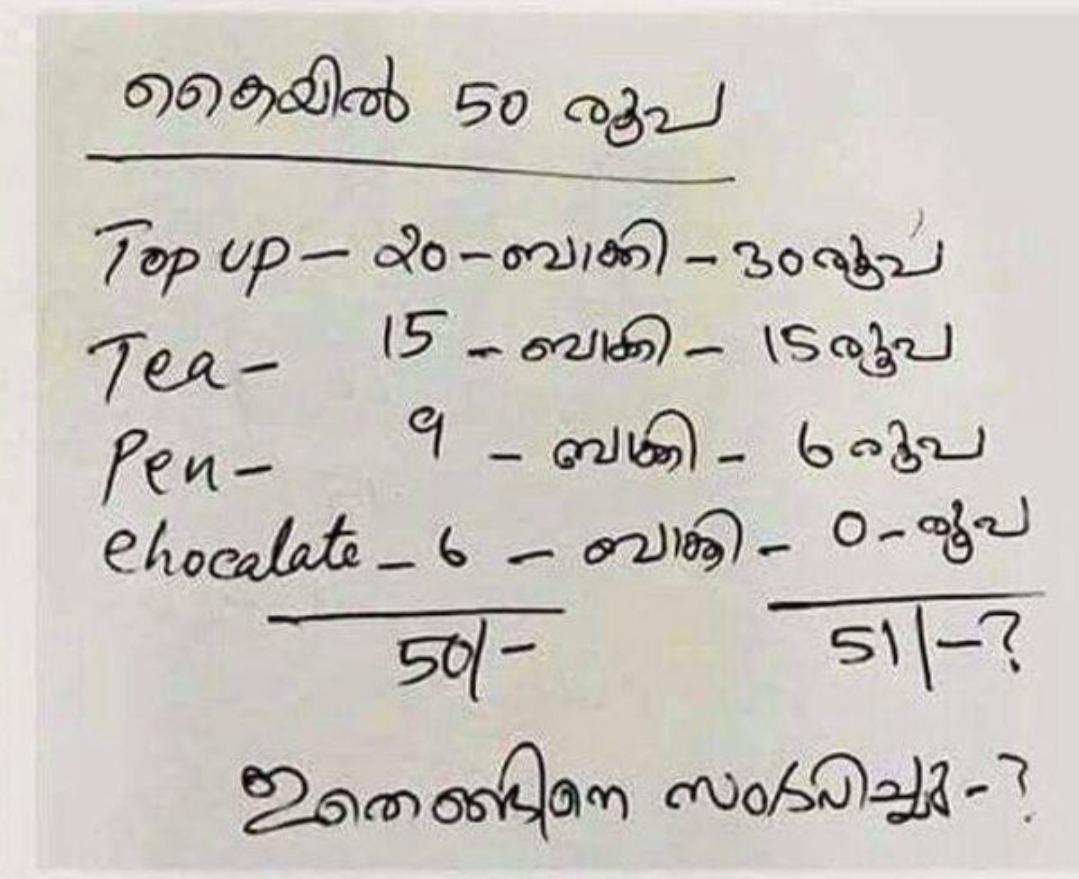 കൈയിൽ 50 രൂപ
Top up - 20 - ബാക്കി - 30 രൂപ
Tea - 15 - ബാക്കി - 15 രൂപ
Pen - 9 - ബക്കി - 6 രൂപ
Chocalate - 6 - ബാക്കി - 0 - രൂപ
50/- 51/-?
ഇതെങ്ങിനെ സംഭവിച്ചു - ?